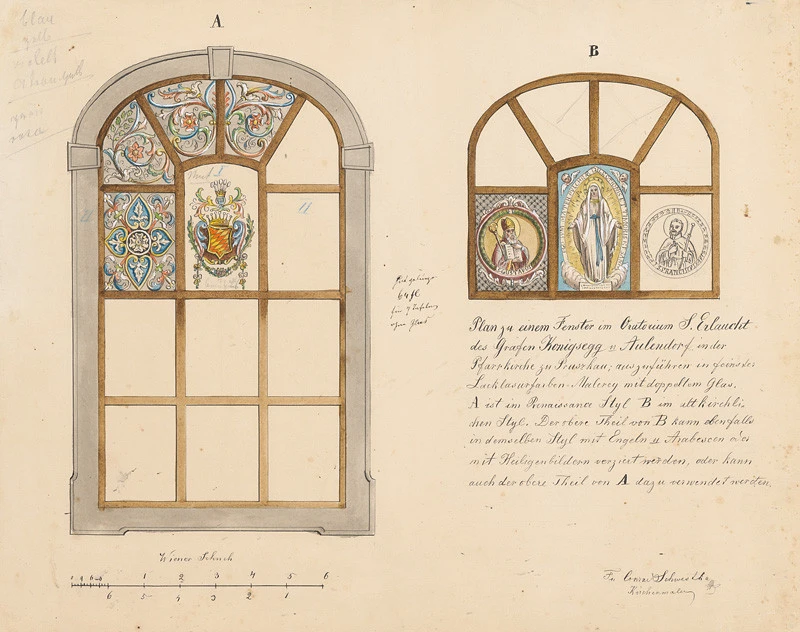 A
B
blau
gelb
11
11
64 fl
Plan zu einem Fenster im Oratorium S. Erlaucht
des Grafen Königsegg u Aulendorf, in der
Pfarrkirche zu Pruszkau; auszuführen in feinster
Lacklasurfarben-Malerey mit doppeltem Glas.
A ist im Renaissance Styl B im altkirchli-
chen Styl. Der obere Theil von B kann ebenfalls
in demselben Styl mit Engeln u Arabescen oder
mit Heiligenbildern verziert werden, oder kann
auch der obere Theil von A dazu verwendet werden.
Wiener Schuh
1 2 3 4 5 6
6 5 4 3 2 1
Conrad
Kirchenmaler